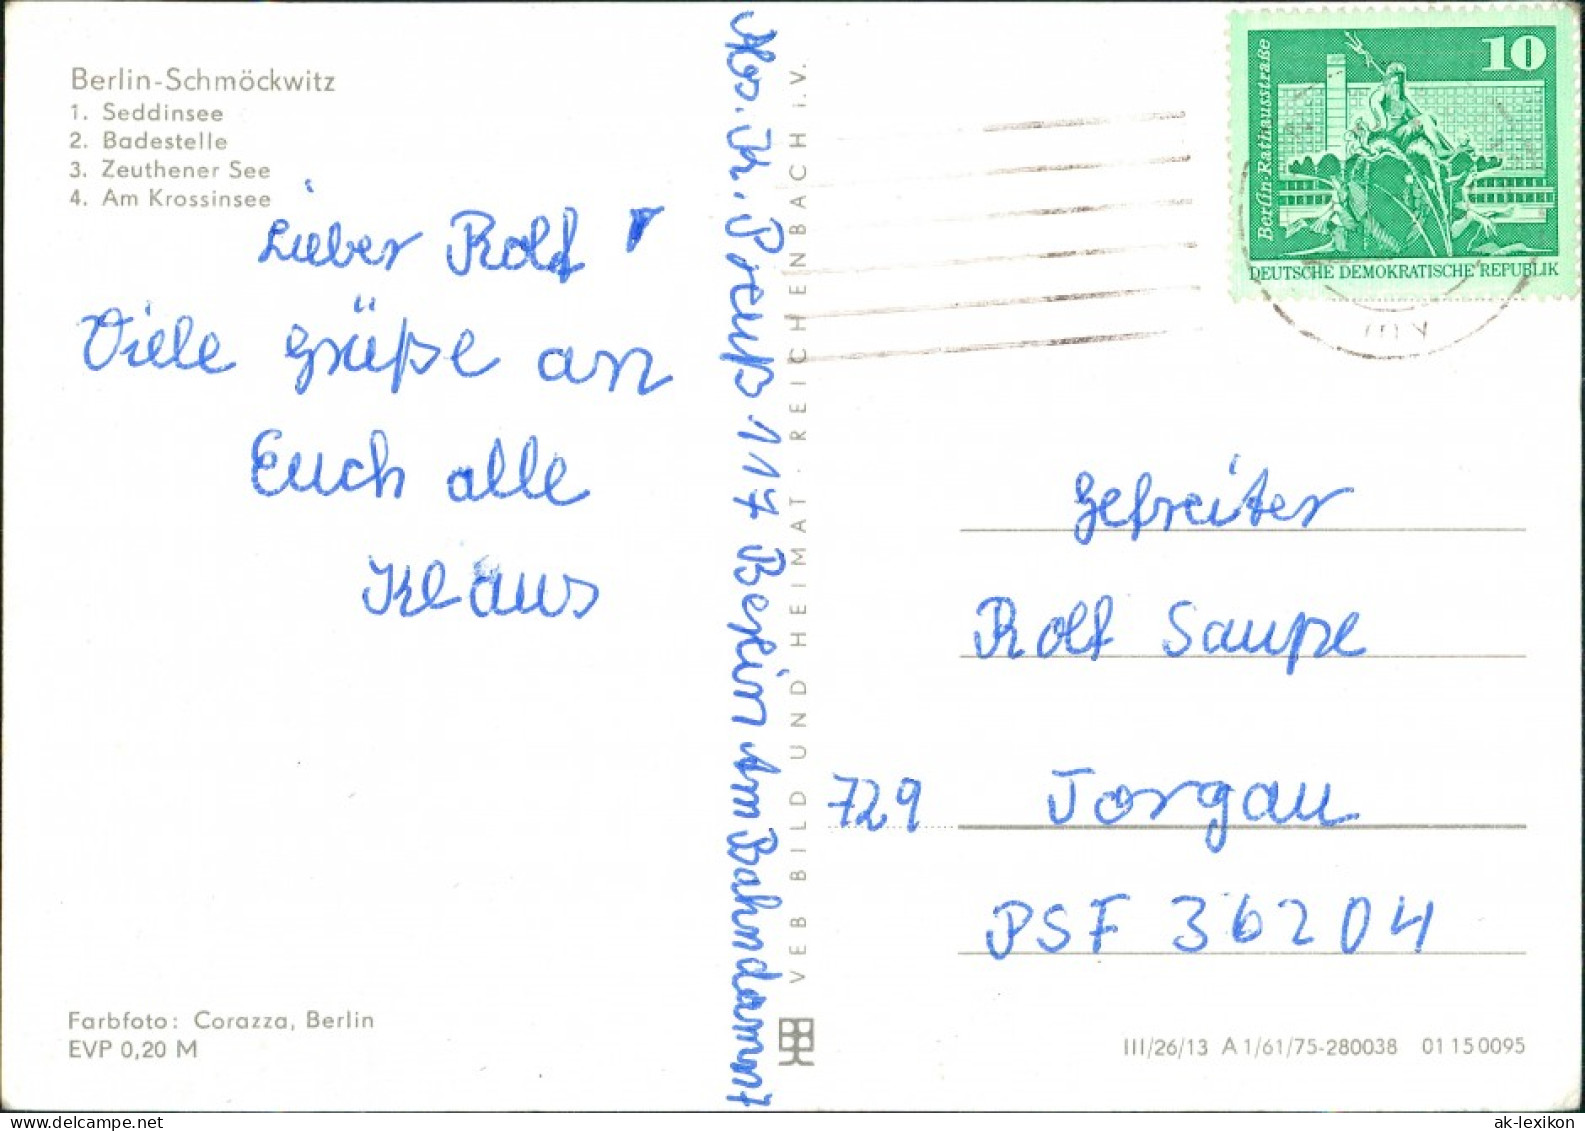 Berlin-Schmöckwitz
1. Seddinsee
2. Badestelle
3. Zeuthener See
4. Am Krossinsee
Lieber Rolf
Viele Grüße an
Euch alle
Klaus
Farbfoto: Corazza, Berlin
EVP 0,20 M
Abs. K. Preuß 117 Berlin Am Bahndamm 7
VEB BILD UND HEIMAT · REICHENBACH i.V.
10
Berlin-Rathausstraße
DEUTSCHE DEMOKRATISCHE REPUBLIK
Gefreiter
Rolf Saupe
729 Torgau
PSF 36204
III/26/13 A 1/61/75-280038 01 15 0095
ak-lexikon